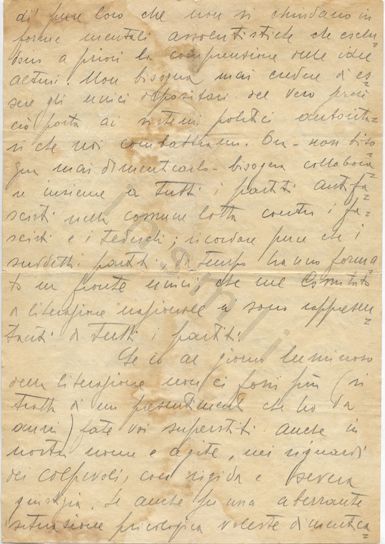 di' pure loro che non si chiudano in
forme mentali assenteistiche che esclu=
dono a priori la comprensione delle idee
altrui. Non bisogna mai credere di es=
sere gli unici depositari del vero perché
ciò porta ai sistemi politici autorita=
ri che noi combattiamo. Ora - non biso
gna mai dimenticarlo - bisogna collabora=
re insieme a tutti i partiti antifa=
scisti nella comune lotta contro i fa=
scisti e i tedeschi; ricordare pure che i
suddetti partiti di tempo hanno forma=
to un fronte unico, che nel Comitato
di liberazione nazionale ci sono rappresen=
tanti di tutti i partiti.
Se io al giorno luminoso
della liberazione non ci fossi più (si
tratta di un presentimento che ho da
) fate voi superstiti anche in
nostro nome e agite, nei riguardi
dei colpevoli, con rigida e severa
giustizia. Se anche in una aberrante
situazione psicologica voleste dimentica=